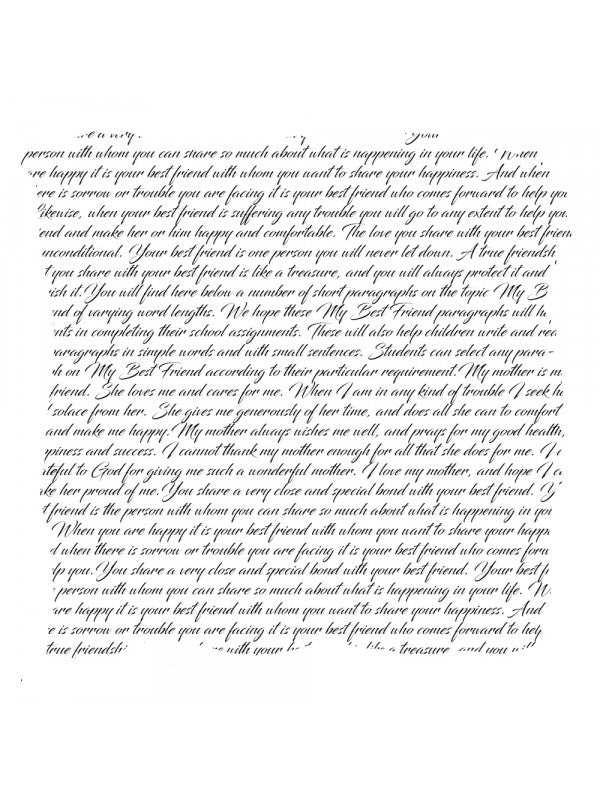 a very
person with whom you can share so much about what is happening in your life. When
are happy it is your best friend with whom you want to share your happiness. And when
ere is sorrow or trouble you are facing it is your best friend who comes forward to help you
ikewise, when your best friend is suffering any trouble you will go to any extent to help you.
end and make her or him happy and comfortable. The love you share with your best frien
unconditional. Your best friend is one person you will never let down. A true friendsh
t you share with your best friend is like a treasure, and you will always protect it and
ish it. You will find here below a number of short paragraphs on the topic My B
nd of varying word lengths. We hope these My Best Friend paragraphs will h
nts in completing their school assignments. These will also help children write and rea
aragraphs in simple words and with small sentences. Students can select any para-
h on My Best Friend according to their particular requirement. My mother is m
friend. She loves me and cares for me. When I am in any kind of trouble I seek h
solace from her. She gives me generously of her time, and does all she can to comfort
and make me happy. My mother always wishes me well, and prays for my good health,
piness and success. I cannot thank my mother enough for all that she does for me. I
ateful to God for giving me such a wonderful mother. I love my mother, and hope I ca
ke her proud of me. You share a very close and special bond with your best friend. Y
t friend is the person with whom you can share so much about what is happening in you
When you are happy it is your best friend with whom you want to share your happ
d when there is sorrow or trouble you are facing it is your best friend who comes forw
lp you. You share a very close and special bond with your best friend. Your best f
person with whom you can share so much about what is happening in your life. W
are happy it is your best friend with whom you want to share your happiness. And
e is sorrow or trouble you are facing it is your best friend who comes forward to help
true friendsh with your like a treasure and you